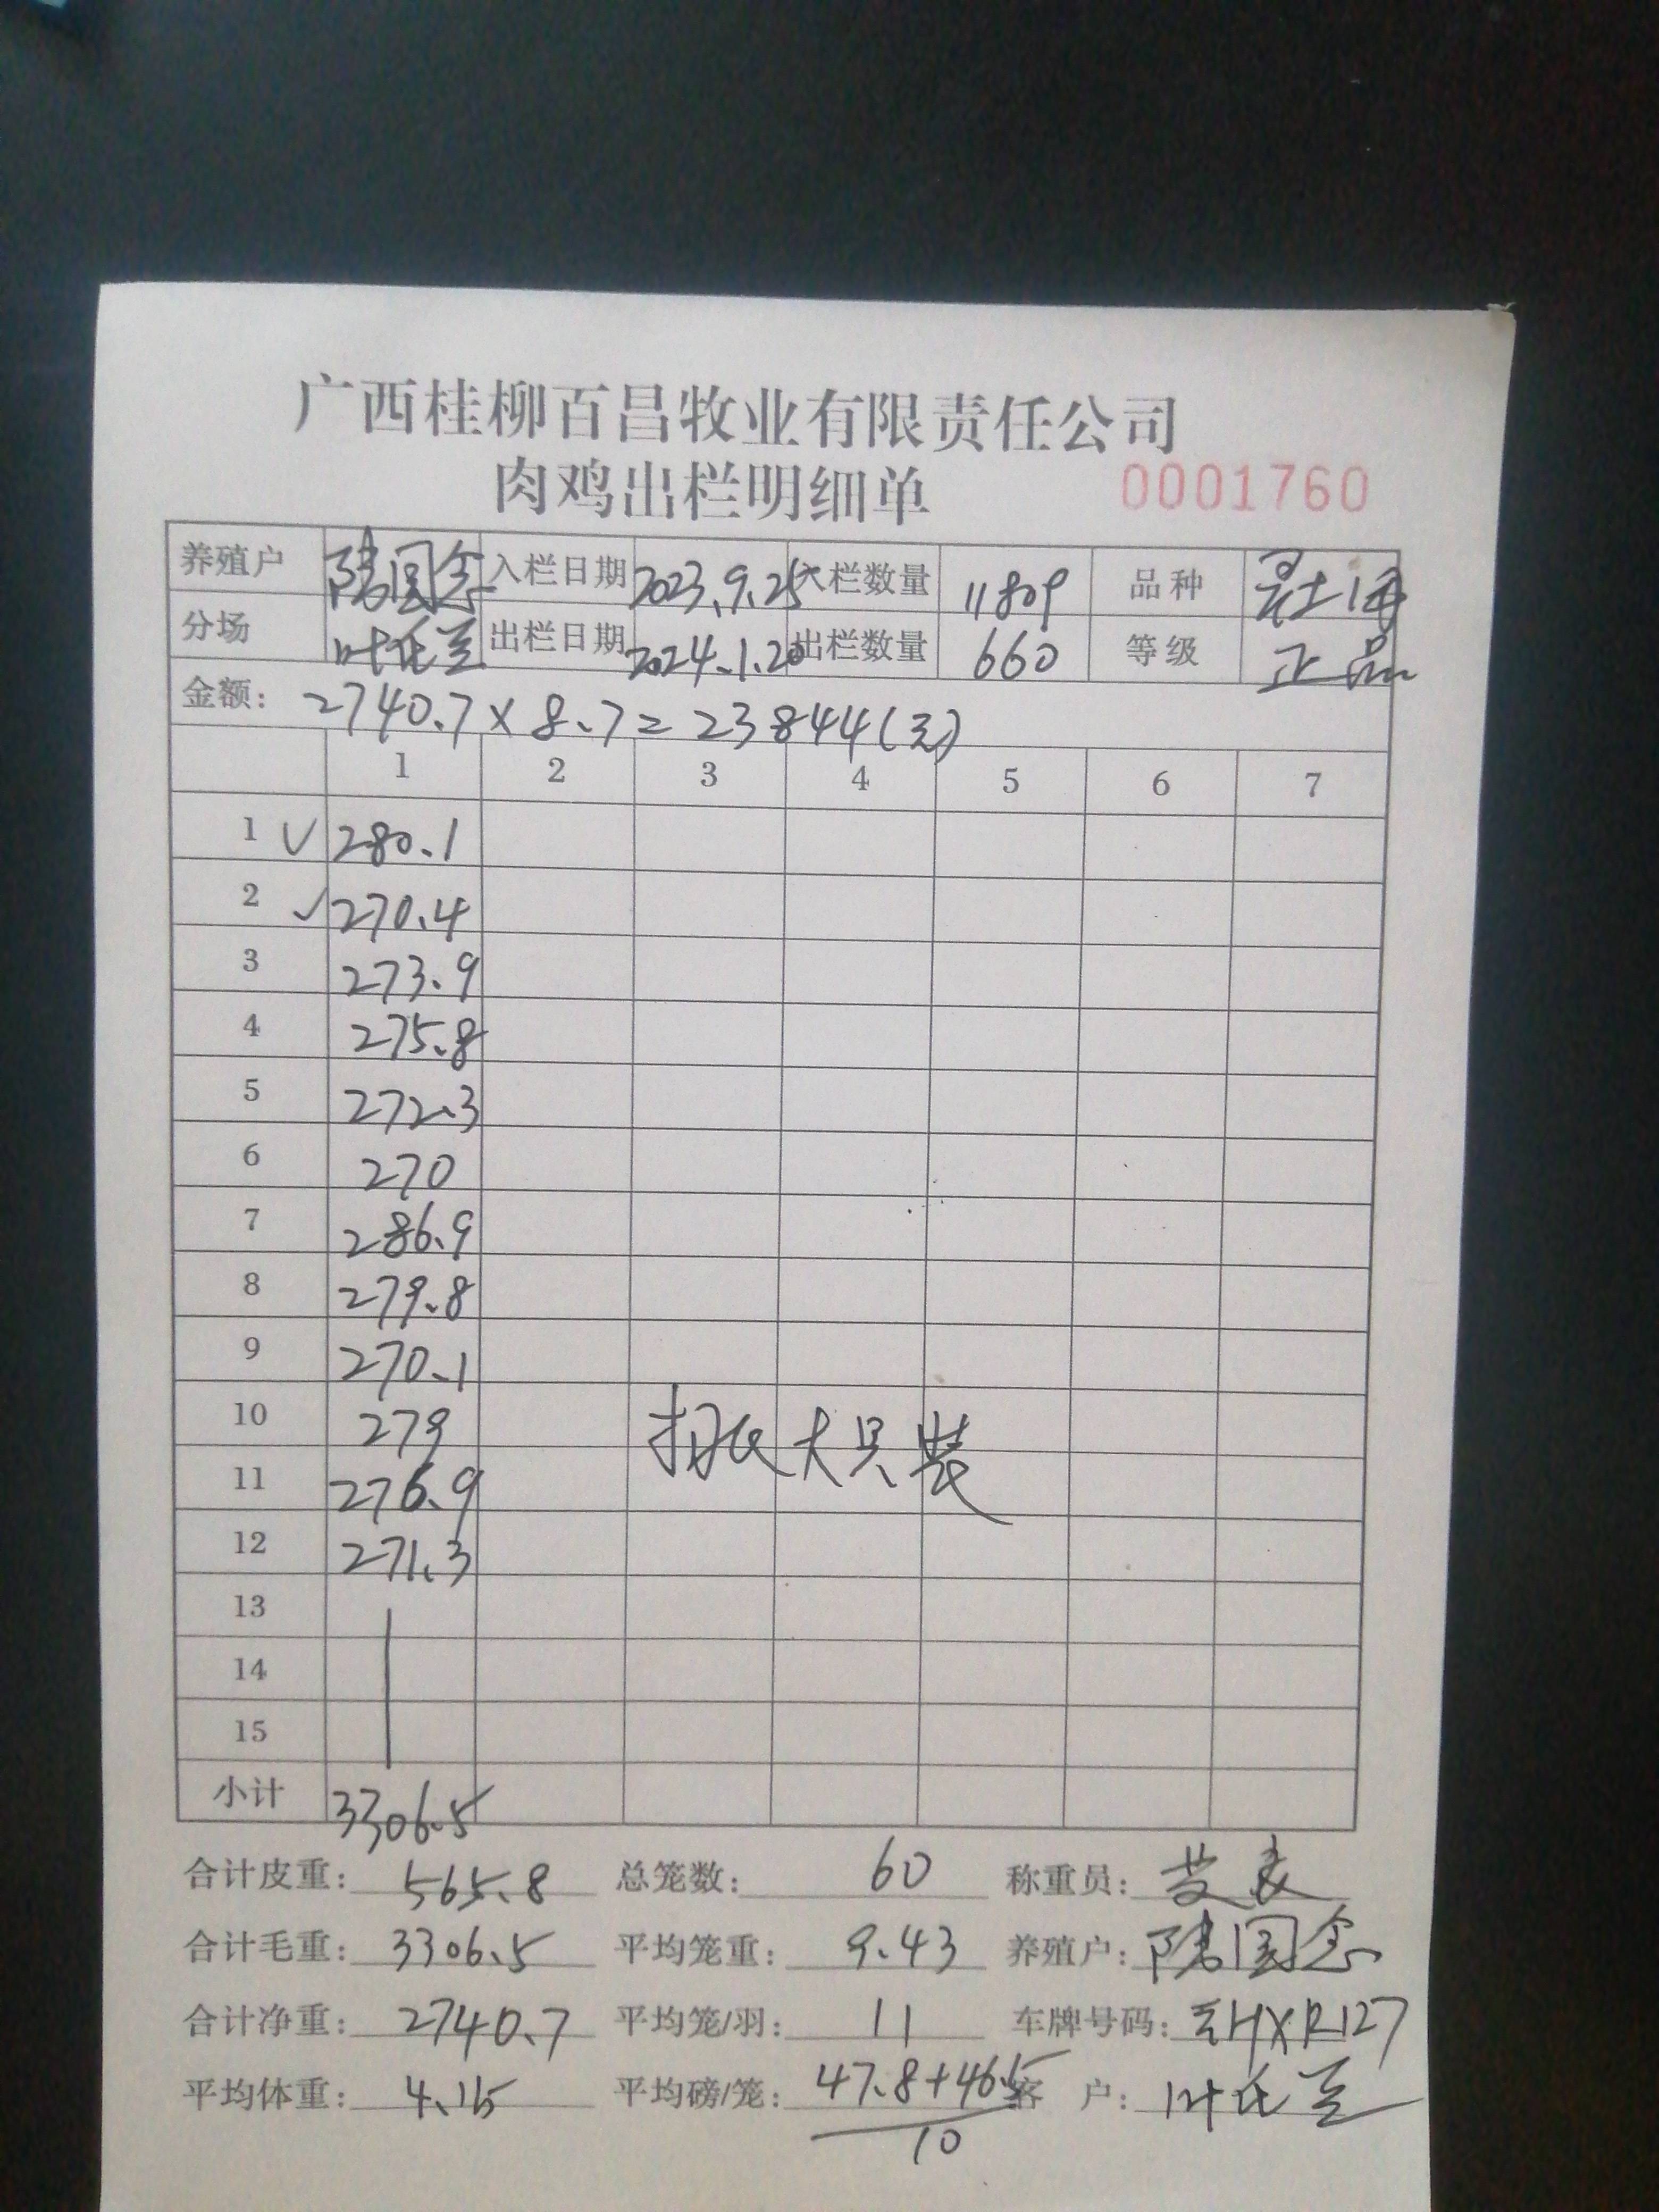 广西桂柳百昌牧业有限责任公司
肉鸡出栏明细单 0001760
养殖户 国念 入栏日期 2023.9.25 入栏数量 11809 品种
分场 叶 出栏日期 2024.1.20 出栏数量 660 等级 正品
金额: 2740.7×8.7=23844(元)
1 2 3 4 5 6 7
1 ✓ 280.1
2 ✓ 270.4
3 273.9
4 275.8
5 272.3
6 270
7 286.9
8 279.8
9 270.1
10 279
11 276.9
12 271.3
13
14
15
大只装
小计 3306.5
合计皮重: 565.8 总笼数: 60 称重员:
合计毛重: 3306.5 平均笼重: 9.43 养殖户: 国念
合计净重: 2740.7 平均笼/羽: 11 车牌号码: HXR127
平均体重: 4.15 平均磅/笼: 47.8+46.5 客 户: 叶
10